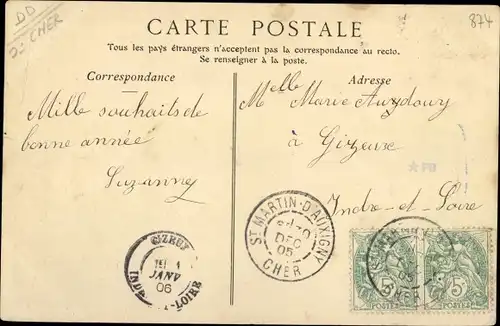 DD
CHER
874
CARTE POSTALE
Tous les pays étrangers n'acceptent pas la correspondance au recto.
Se renseigner à la poste.
Correspondance
Mille souhaits de
bonne année
Suzanne
Adresse
Melle Marie
à Gizeux
Indre-et-Loire
ST MARTIN-D'AUXIGNY
DEC
05
CHER
GIZEUX
JANV
06
INDRE-ET-LOIRE
5 5
POSTES